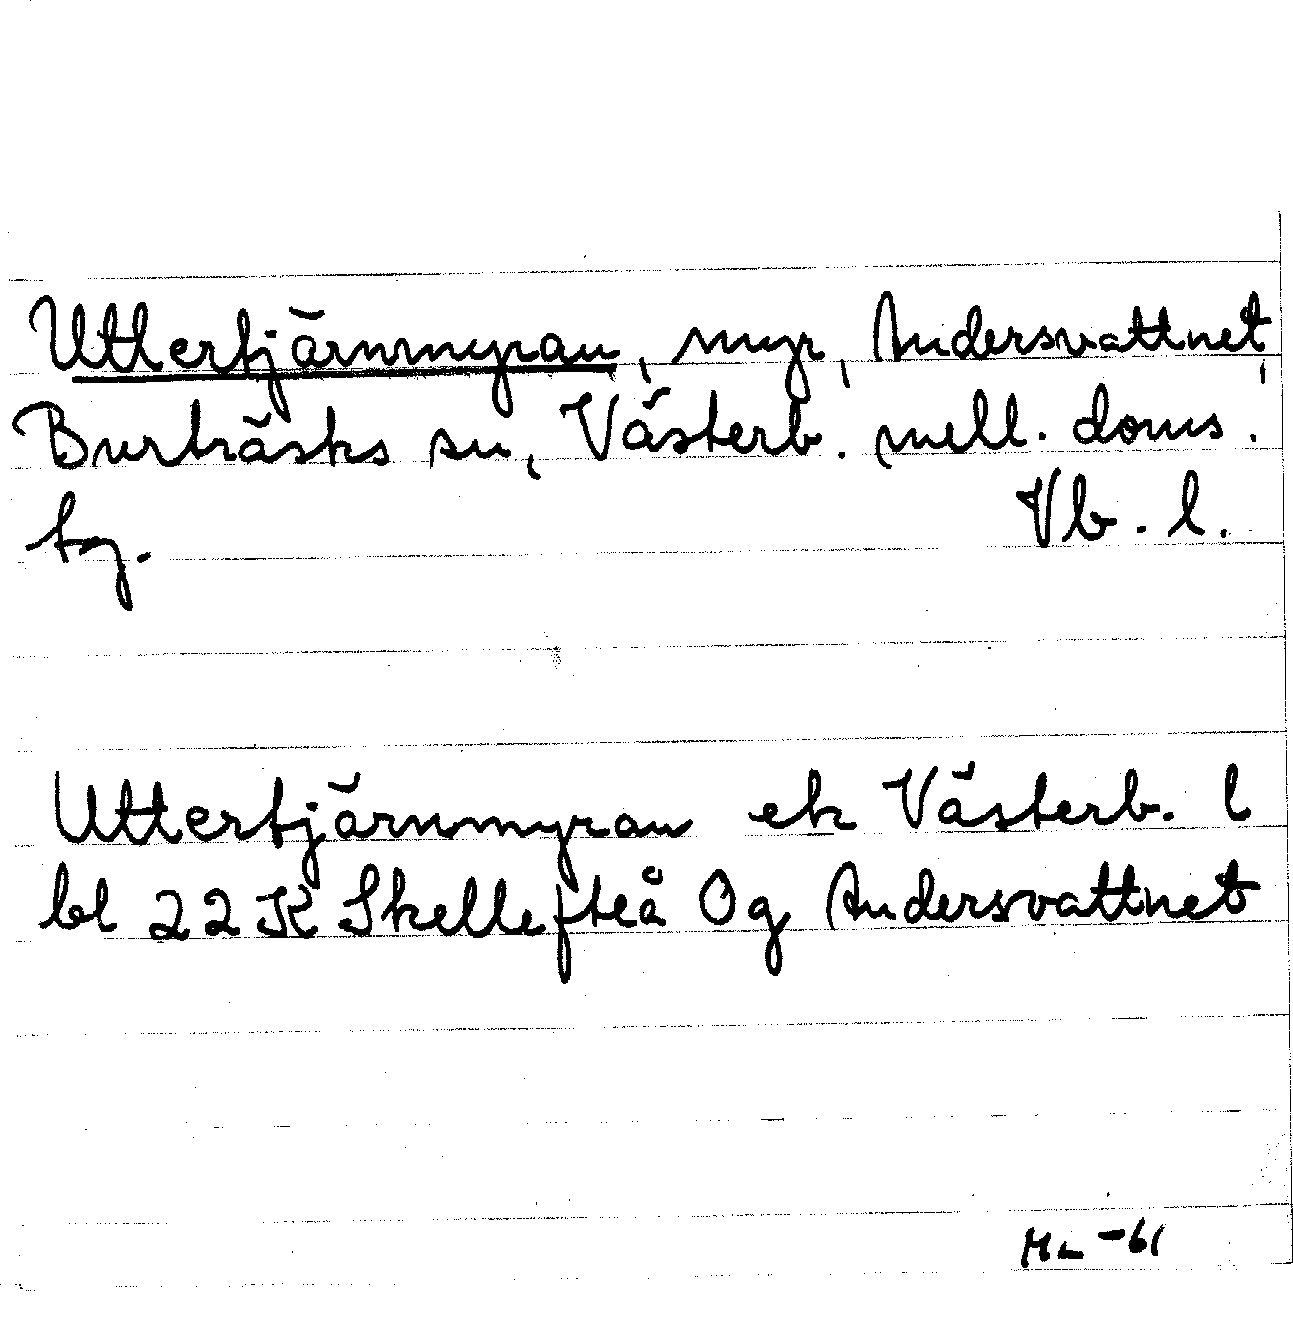 Uttertjärnmyran, myr, Andersvattnet,
Burträsks sn, Västerb. mell. doms.
tg. Vb. l.
Uttertjärnmyran ek Västerb. l
bl 22K Skellefteå Og Andersvattnet
-61